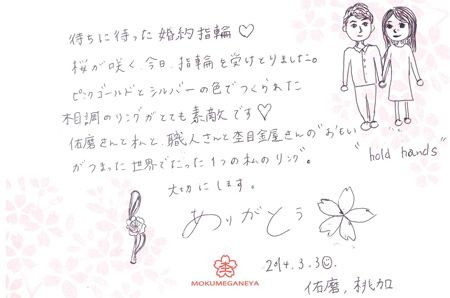 待ちに待った婚約指輪♡
桜が咲く、今日、指輪を受けとりました。
ピンクゴールドとシルバーの色でつくられた
木目調のリングがとても素敵です♡
佑磨さんと私と、職人さんと杢目金屋さんの"おもい"
がつまった世界でたった1つの私のリング。
大切にします。
ありがとう
"hold hands"
MOKUMEGANEYA
2014.3.30
佑磨, 桃加